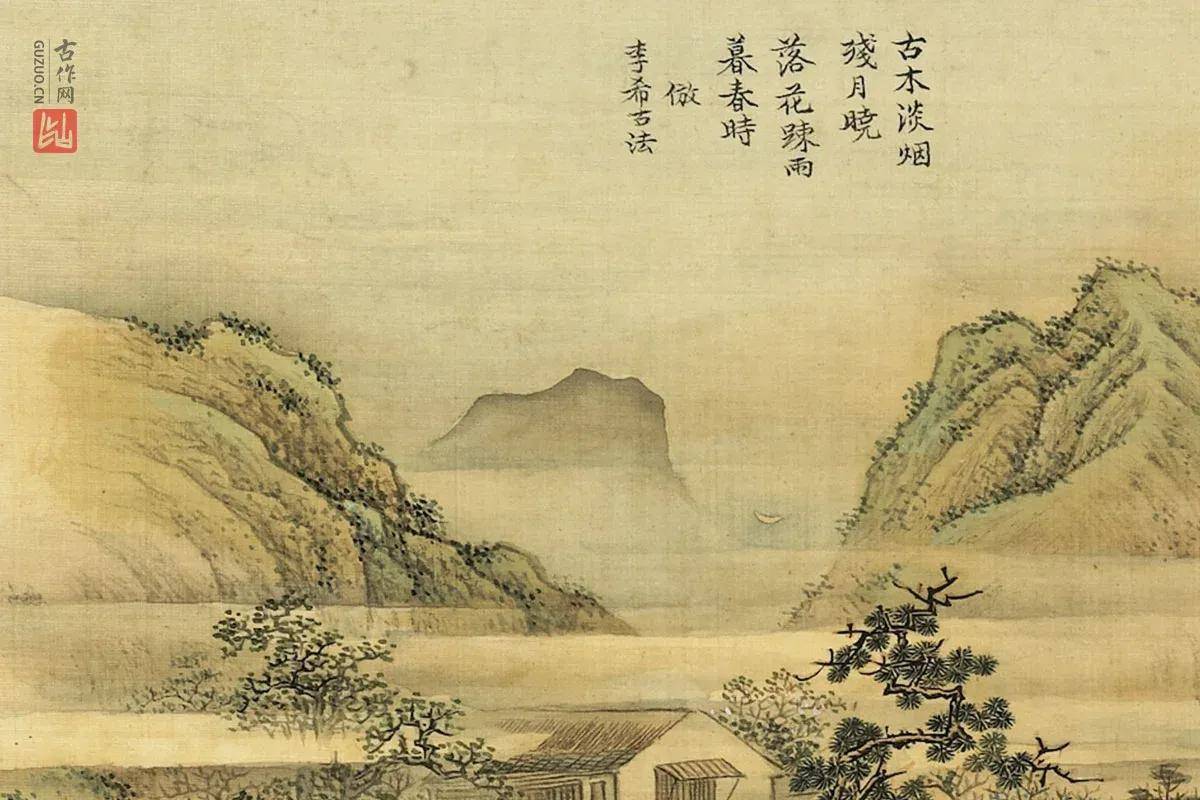 古木淡烟
殘月曉
落花踈雨
暮春時
倣
李希古法
古作网
GUZUO.CN